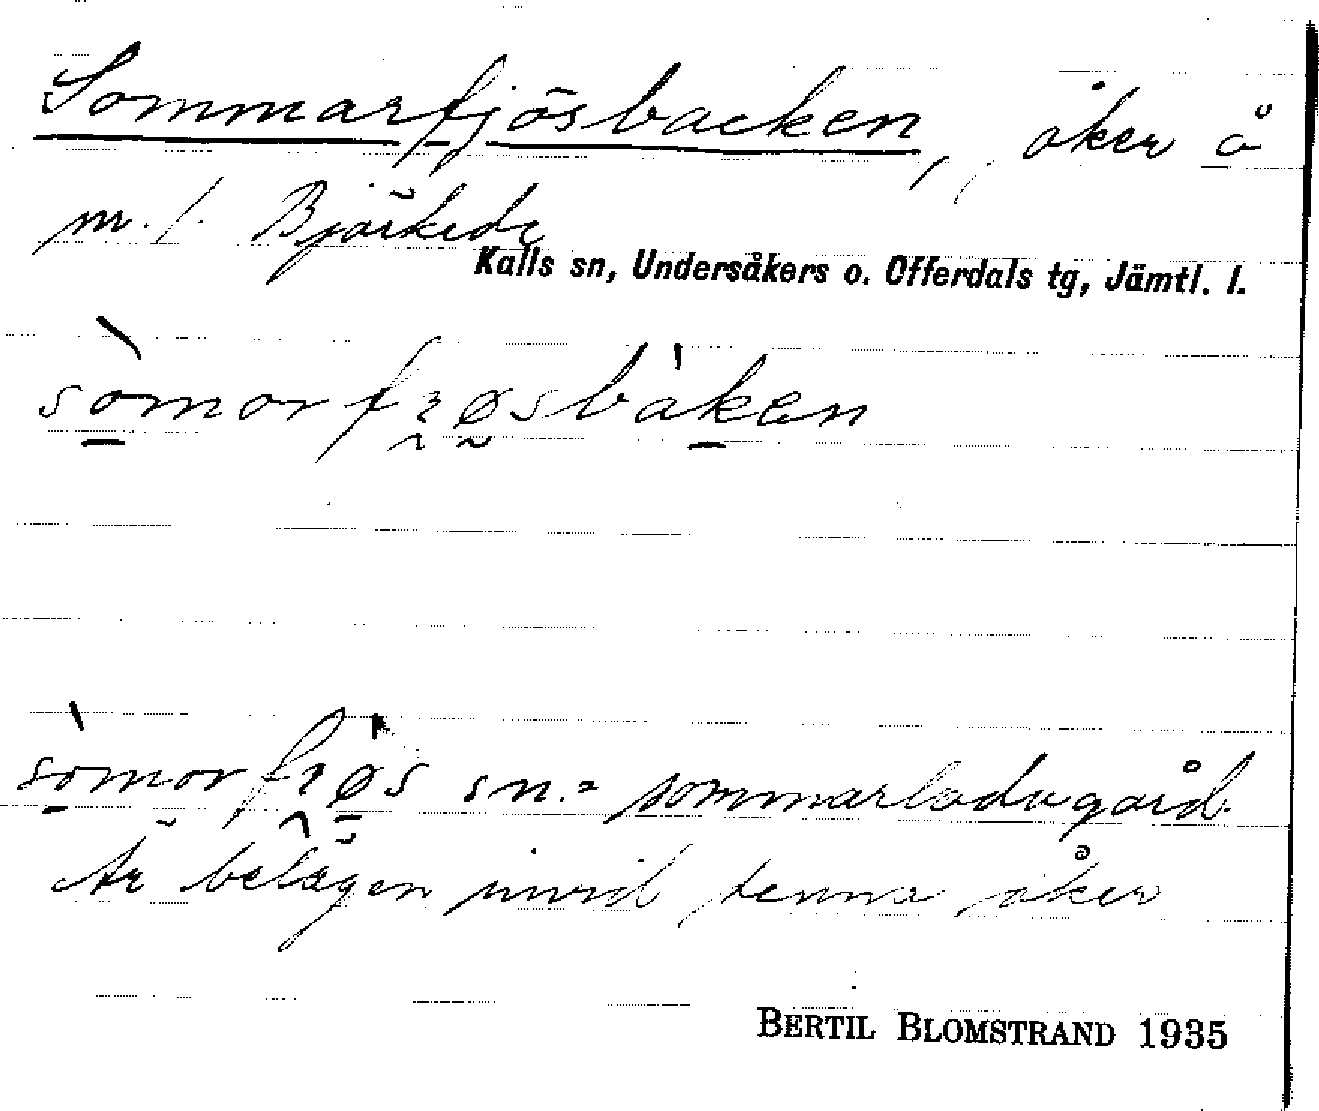 Sommarfjösbacken, åker å
nr. 1. Björkede
Kalls sn, Undersåkers o. Offerdals tg, Jämtl. l.
sòmorfɿøsbaken
sòmorfɿøs sn.= sommarladugård.
Är belägen invid denna åker
BERTIL BLOMSTRAND 1935